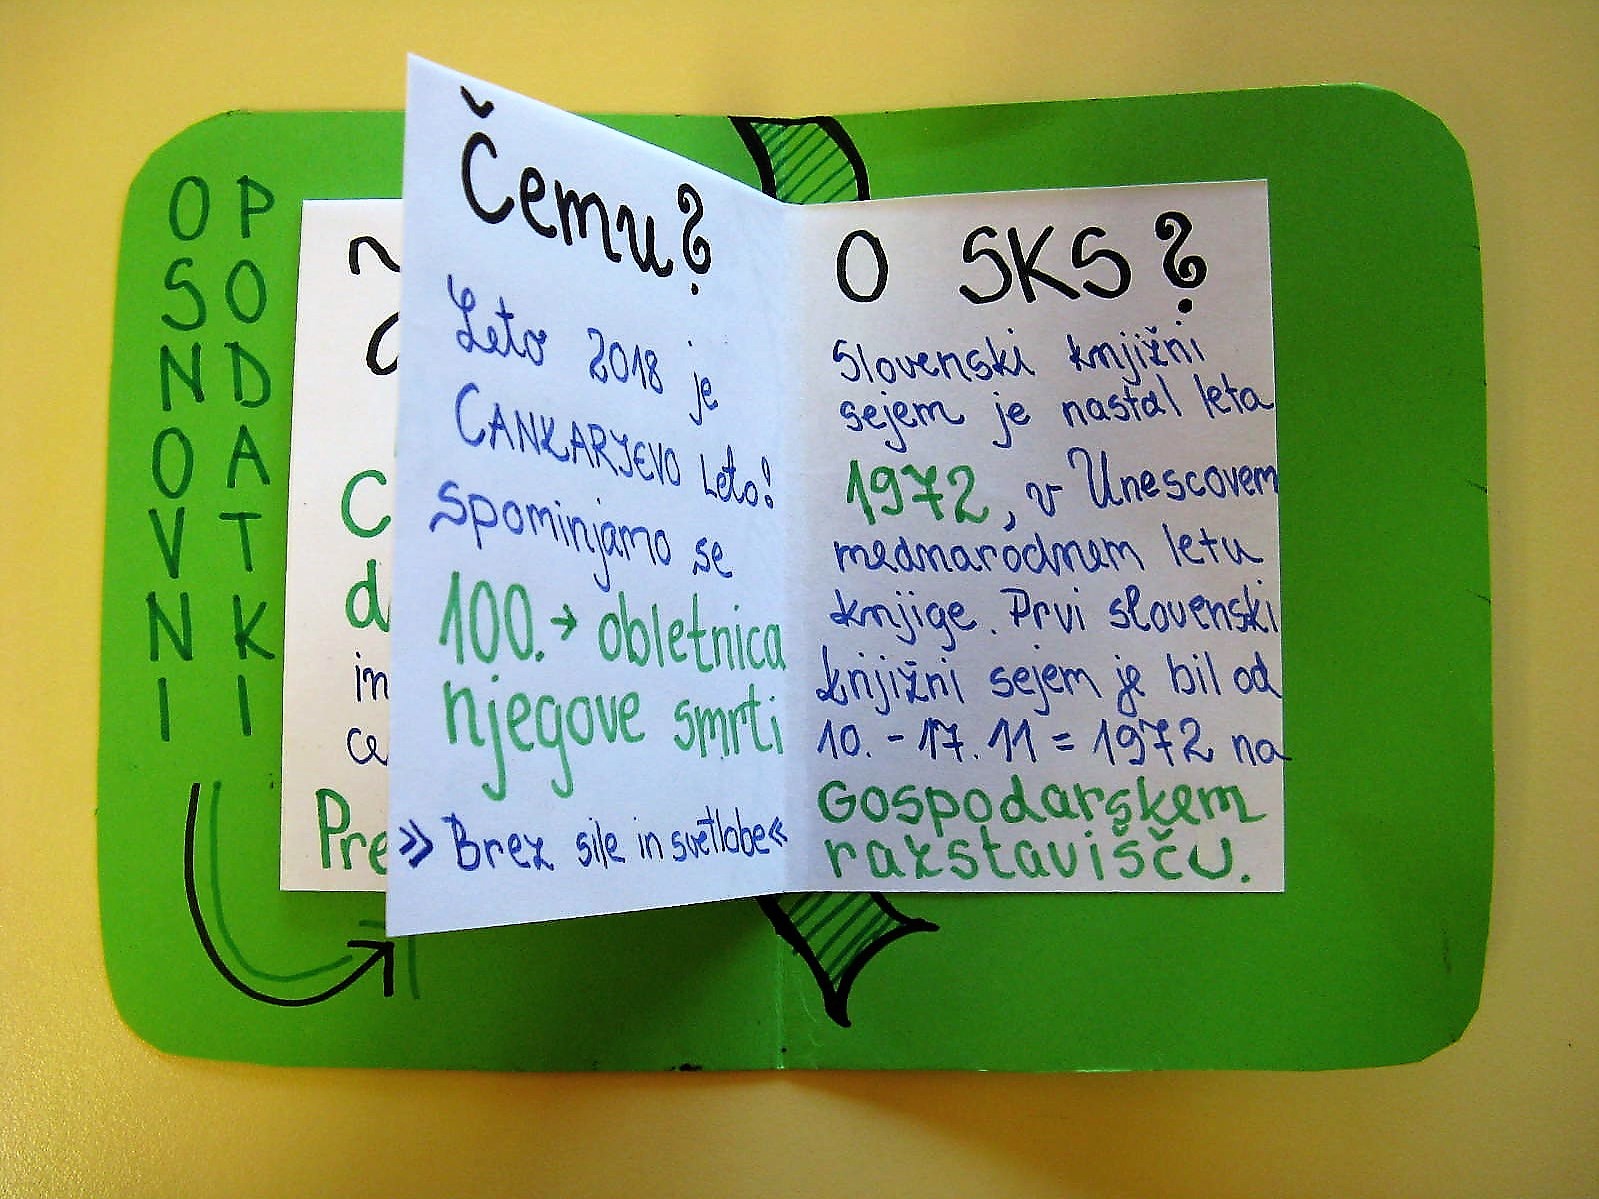 OSNOVNI
PODATKI
Čemu?
Leto 2018 je
CANKARJEVO Leto!
Spominjamo se
100. → obletnica
njegove smrti
» Brez sile in svetlobe«
O SKS?
Slovenski knjižni
sejem je nastal leta
1972, v Unescovem
mednarodnem letu
knjige. Prvi slovenski
knjižni sejem je bil od
10. - 17. 11 = 1972 na
Gospodarskem
razstavišču.